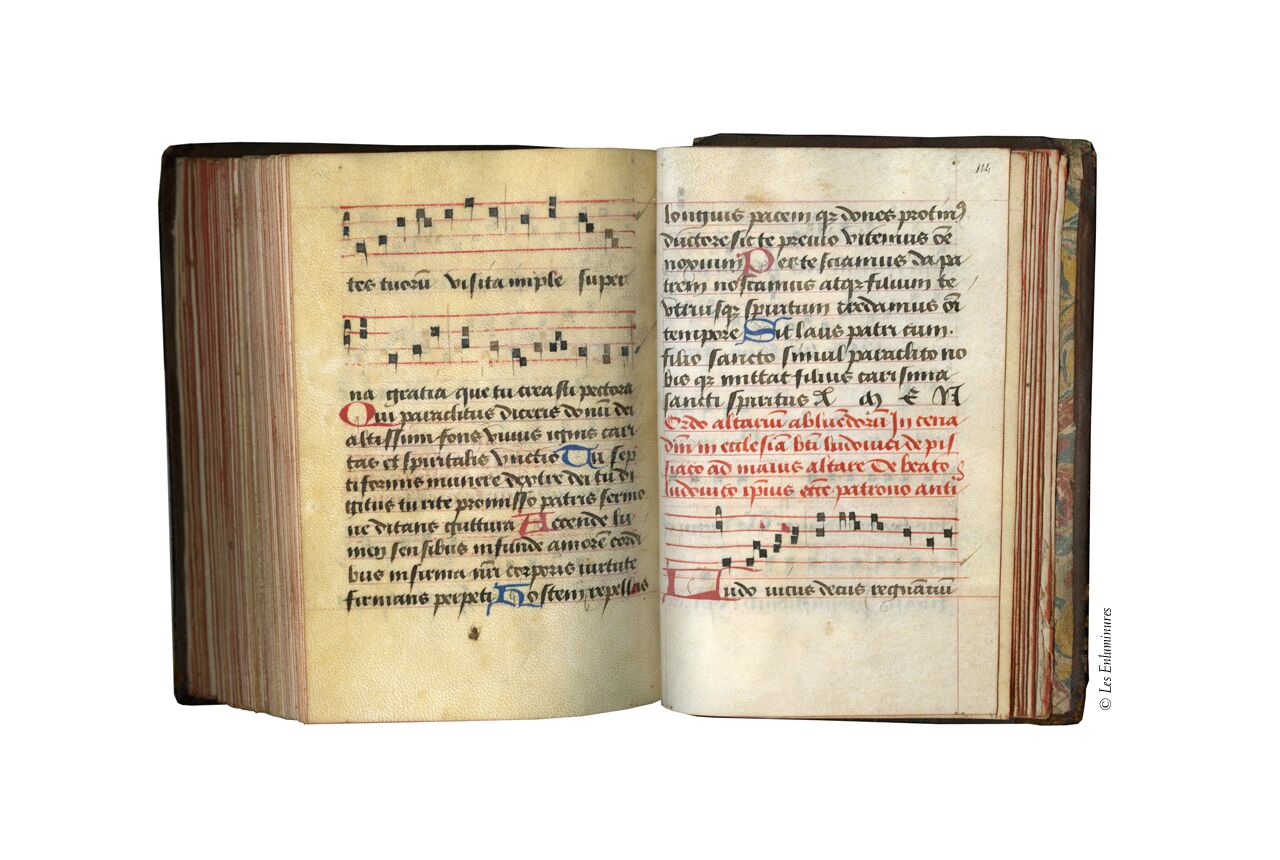 tes tuoru᷉ visita imple super
na gratia que tu creasti pectora
Qui paraclitus diceris donu᷉ dei
altissim fons vivus ignis cari
tas et spiritalis vnctio Tu sep
tiformis munere dextre dei tu di
gitus tu rite promisso patris sermo
ne ditans guttura Accende lu
men sensibus infunde amore᷉ cordi
bus infirma nr᷉i corporis virtute
firmans perpeti Hostem repellas
114
longius pacem qꝫ dones protin᷒
ductore sic te previo vitemus o᷉e
noxium Per te sciamus da pa
trem noscamus atqꝫ filium te
vtriusqꝫ spiritum credamus o᷉i
tempore Sit laus patri cum
filio sancto simul paraclito no
bis qꝫ mittat filius carisma
sancti spiritus A M E N
Ordo altariu᷉ abluendoru᷉ In cena
dn᷉i in ecclesia᷉ bt᷉i ludovici de pis
siaco ad maius altare De beato
ludovico ip᷉ius ecc᷉e patrono anti᷒
Ludovicus decus regnantiu᷉
© Les Enluminures